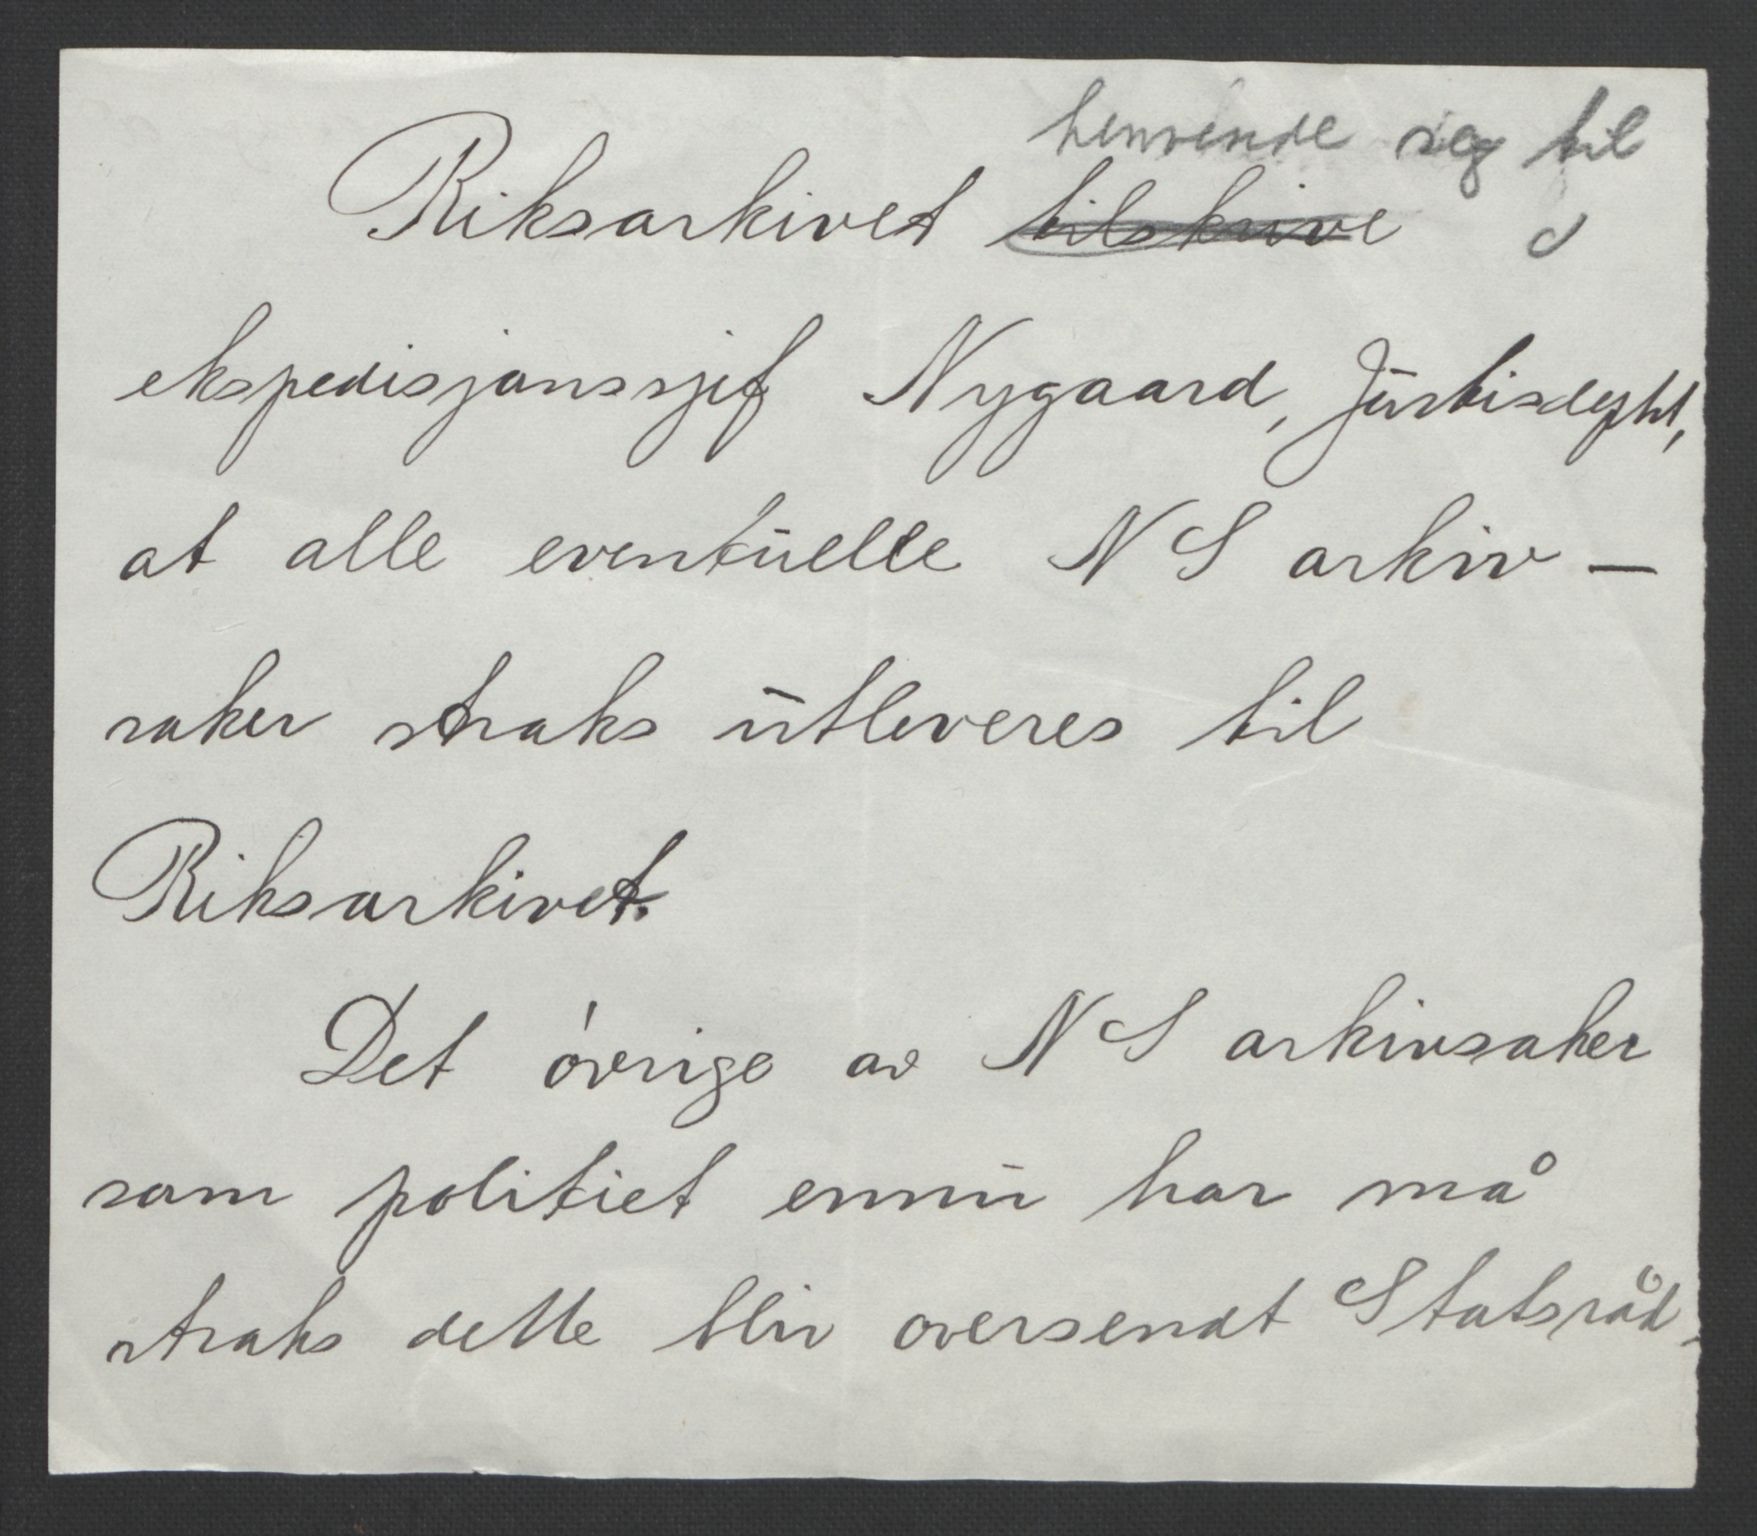 henvende seg til
Riksarkivet tilskrive
ekspedisjonssjef Nygaard, Justisdept,
at alle eventuelle NS arkiv –
saker straks utleveres til
Riksarkivet.
Det øvrige av NS arkivsaker
som politiet ennu har må
straks dette bliv oversendt Statsråd-